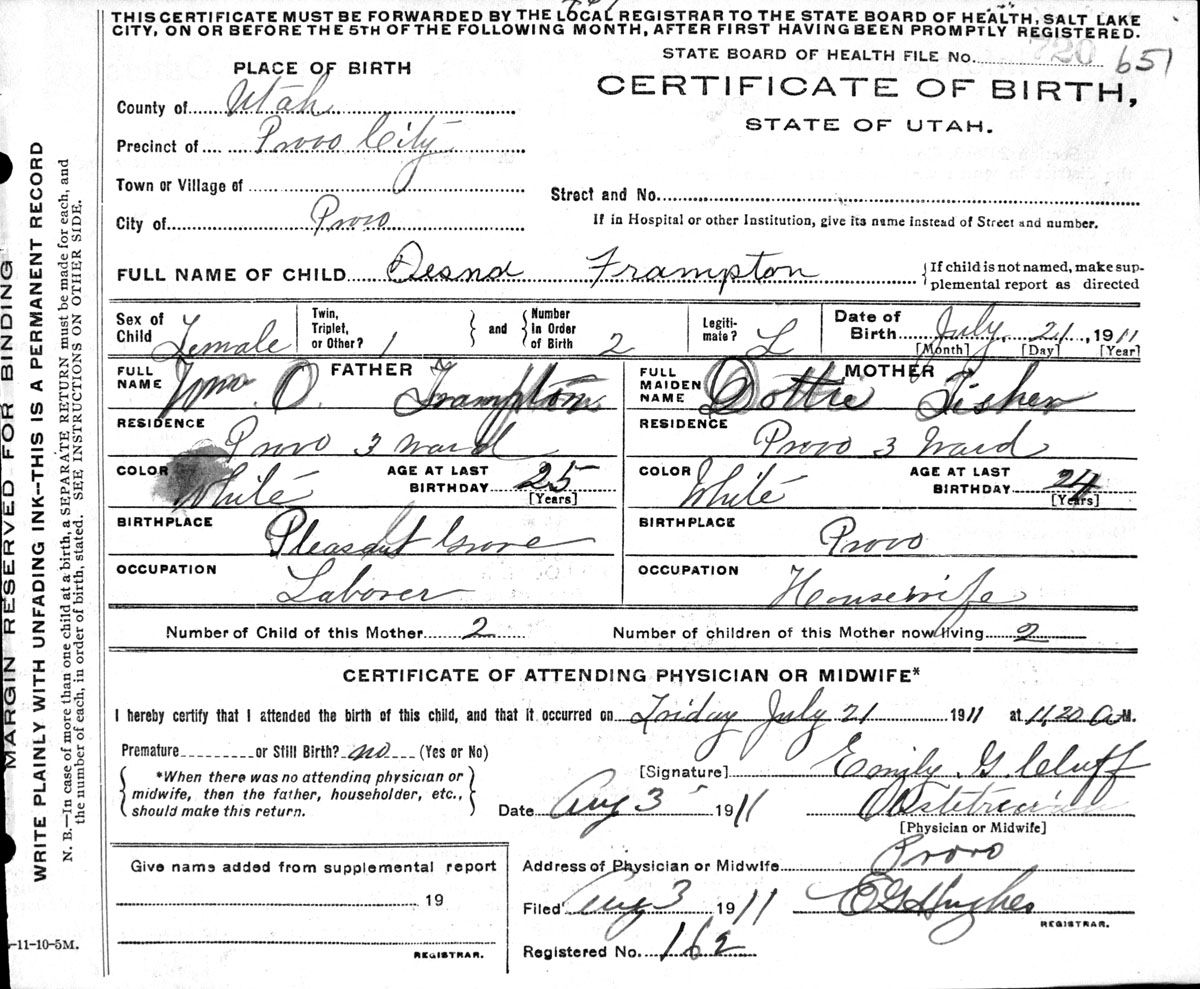 THIS CERTIFICATE MUST BE FORWARDED BY THE LOCAL REGISTRAR TO THE STATE BOARD OF HEALTH, SALT LAKE
CITY, ON OR BEFORE THE 5TH OF THE FOLLOWING MONTH, AFTER FIRST HAVING BEEN PROMPTLY REGISTERED.
STATE BOARD OF HEALTH FILE No. 720 651
PLACE OF BIRTH
CERTIFICATE OF BIRTH,
STATE OF UTAH.
County of Utah
Precinct of Provo City
Town or Village of
Street and No.
City of Provo
If in Hospital or other Institution, give its name instead of Street and number.
FULL NAME OF CHILD Frampton
{If child is not named, make sup-
plemental report as directed
Sex of Child Female
Twin, Triplet, or Other? 1 } and { Number in Order of Birth 2
Legiti-mate? L
Date of Birth July 21, 1911
[Month] [Day] [Year]
FATHER
FULL NAME Wm. O. Frampton
MOTHER
FULL MAIDEN NAME Dottie Fisher
RESIDENCE Provo 3 Ward
RESIDENCE Provo 3 Ward
COLOR White AGE AT LAST BIRTHDAY 25 [Years]
COLOR White AGE AT LAST BIRTHDAY 24 [Years]
BIRTHPLACE Pleasant Grove
BIRTHPLACE Provo
OCCUPATION Laborer
OCCUPATION Housewife
Number of Child of this Mother 2 Number of children of this Mother now living 2
CERTIFICATE OF ATTENDING PHYSICIAN OR MIDWIFE*
I hereby certify that I attended the birth of this child, and that it occurred on Friday July 21 1911 at 11,20 A M.
Premature or Still Birth? no (Yes or No)
{*When there was no attending physician or
midwife, then the father, householder, etc.,
should make this return.}
[Signature] Emily G. Cluff
Date Aug 3 1911 Obstetrician
[Physician or Midwife]
Give name added from supplemental report
19
REGISTRAR.
Address of Physician or Midwife Provo
Filed Aug 3 1911 EG Hughes
REGISTRAR.
Registered No. 162
-11-10-5M.
MARGIN RESERVED FOR BINDING
WRITE PLAINLY WITH UNFADING INK--THIS IS A PERMANENT RECORD
N. B.—In case of more than one child at a birth, a SEPARATE RETURN must be made for each, and
the number of each, in order of birth, stated. SEE INSTRUCTIONS ON OTHER SIDE.